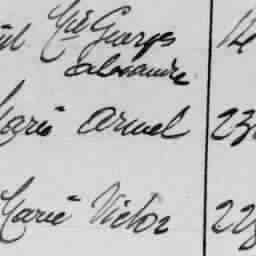 Georges 14
alexandre
Marie armel 23
Marie Victor 228